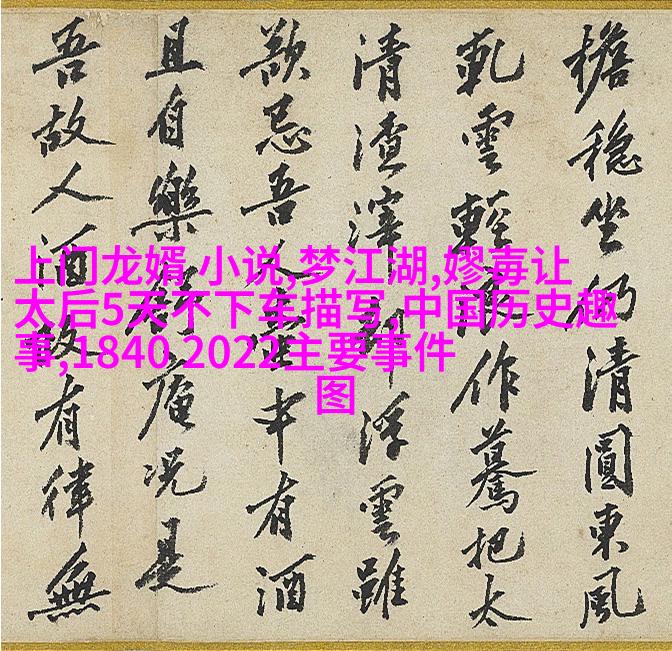 檐穩坐仍清圓東風
軋雲輕作驀把太
清渣滓浮雲雖
歎忌吾人中有酒
且自樂庵况是
吾故人酒故有律無
上门龙婿 小说,梦江湖,嫪毐让
太后5天不下车描写,中国历史趣
事,1840 2022主要事件
图